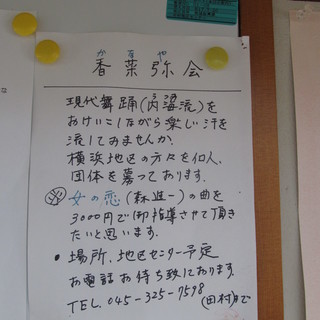 かなや
香菜弥会
現代舞踊(内海流)を
おけいこしながら楽しい汗を
流してみませんか。
横浜地区の方々を個人、
団体を募っております。
女の恋(森進一)の曲を
3000円で御指導させて頂き
たいと思います。
• 場所、地区センター予定
お電話お待ち致しております。
TEL. 045-325-7598
(田村)まで